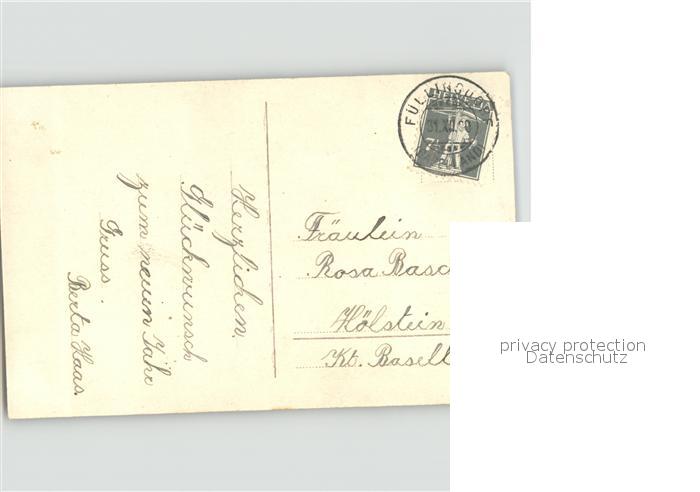 FÜLLINSDORF
31.XII.09
Herzlichen
Glückwunsch
zum neuen Jahr
Gruss.
Berta Haas.
Fräulein
Rosa Basc
Hölstein
Kt. Basell
privacy protection
Datenschutz